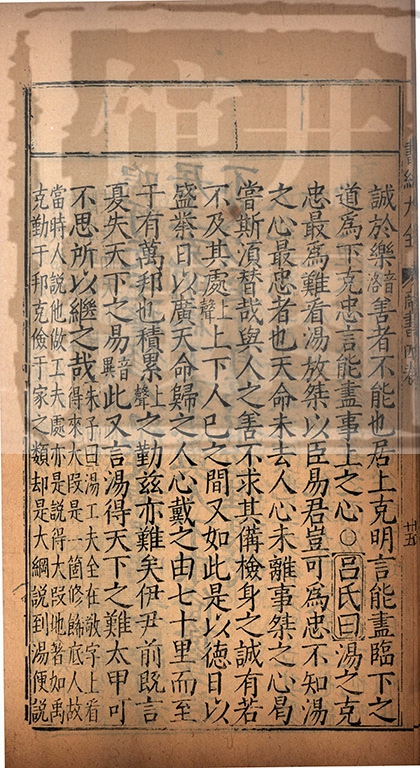 誠於樂音洛善者不能也居上克明言能盡臨下之
道爲下克忠言能盡事上之心○呂氏曰湯之克
忠最爲難看湯放桀以臣易君豈可爲忠不知湯
之心最忠者也天命未去人心未離事桀之心曷
嘗斯須替哉與人之善不求其備檢身之誠有若
不及其處上聲上下人己之間又如此是以德日以
盛業日以廣天命歸之人心戴之由七十里而至
于有萬邦也積累上聲之勤茲亦難矣伊尹前既言
夏失天下之易音異此又言湯得天下之難太甲可
不思所以繼之哉朱子曰湯工夫全在敬字上看
得來大段是一箇修飭底人故
當時人說他做工夫處亦是說得大段地著如禹
克勤于邦克儉于家之類却是大綱說到湯便說
廿五